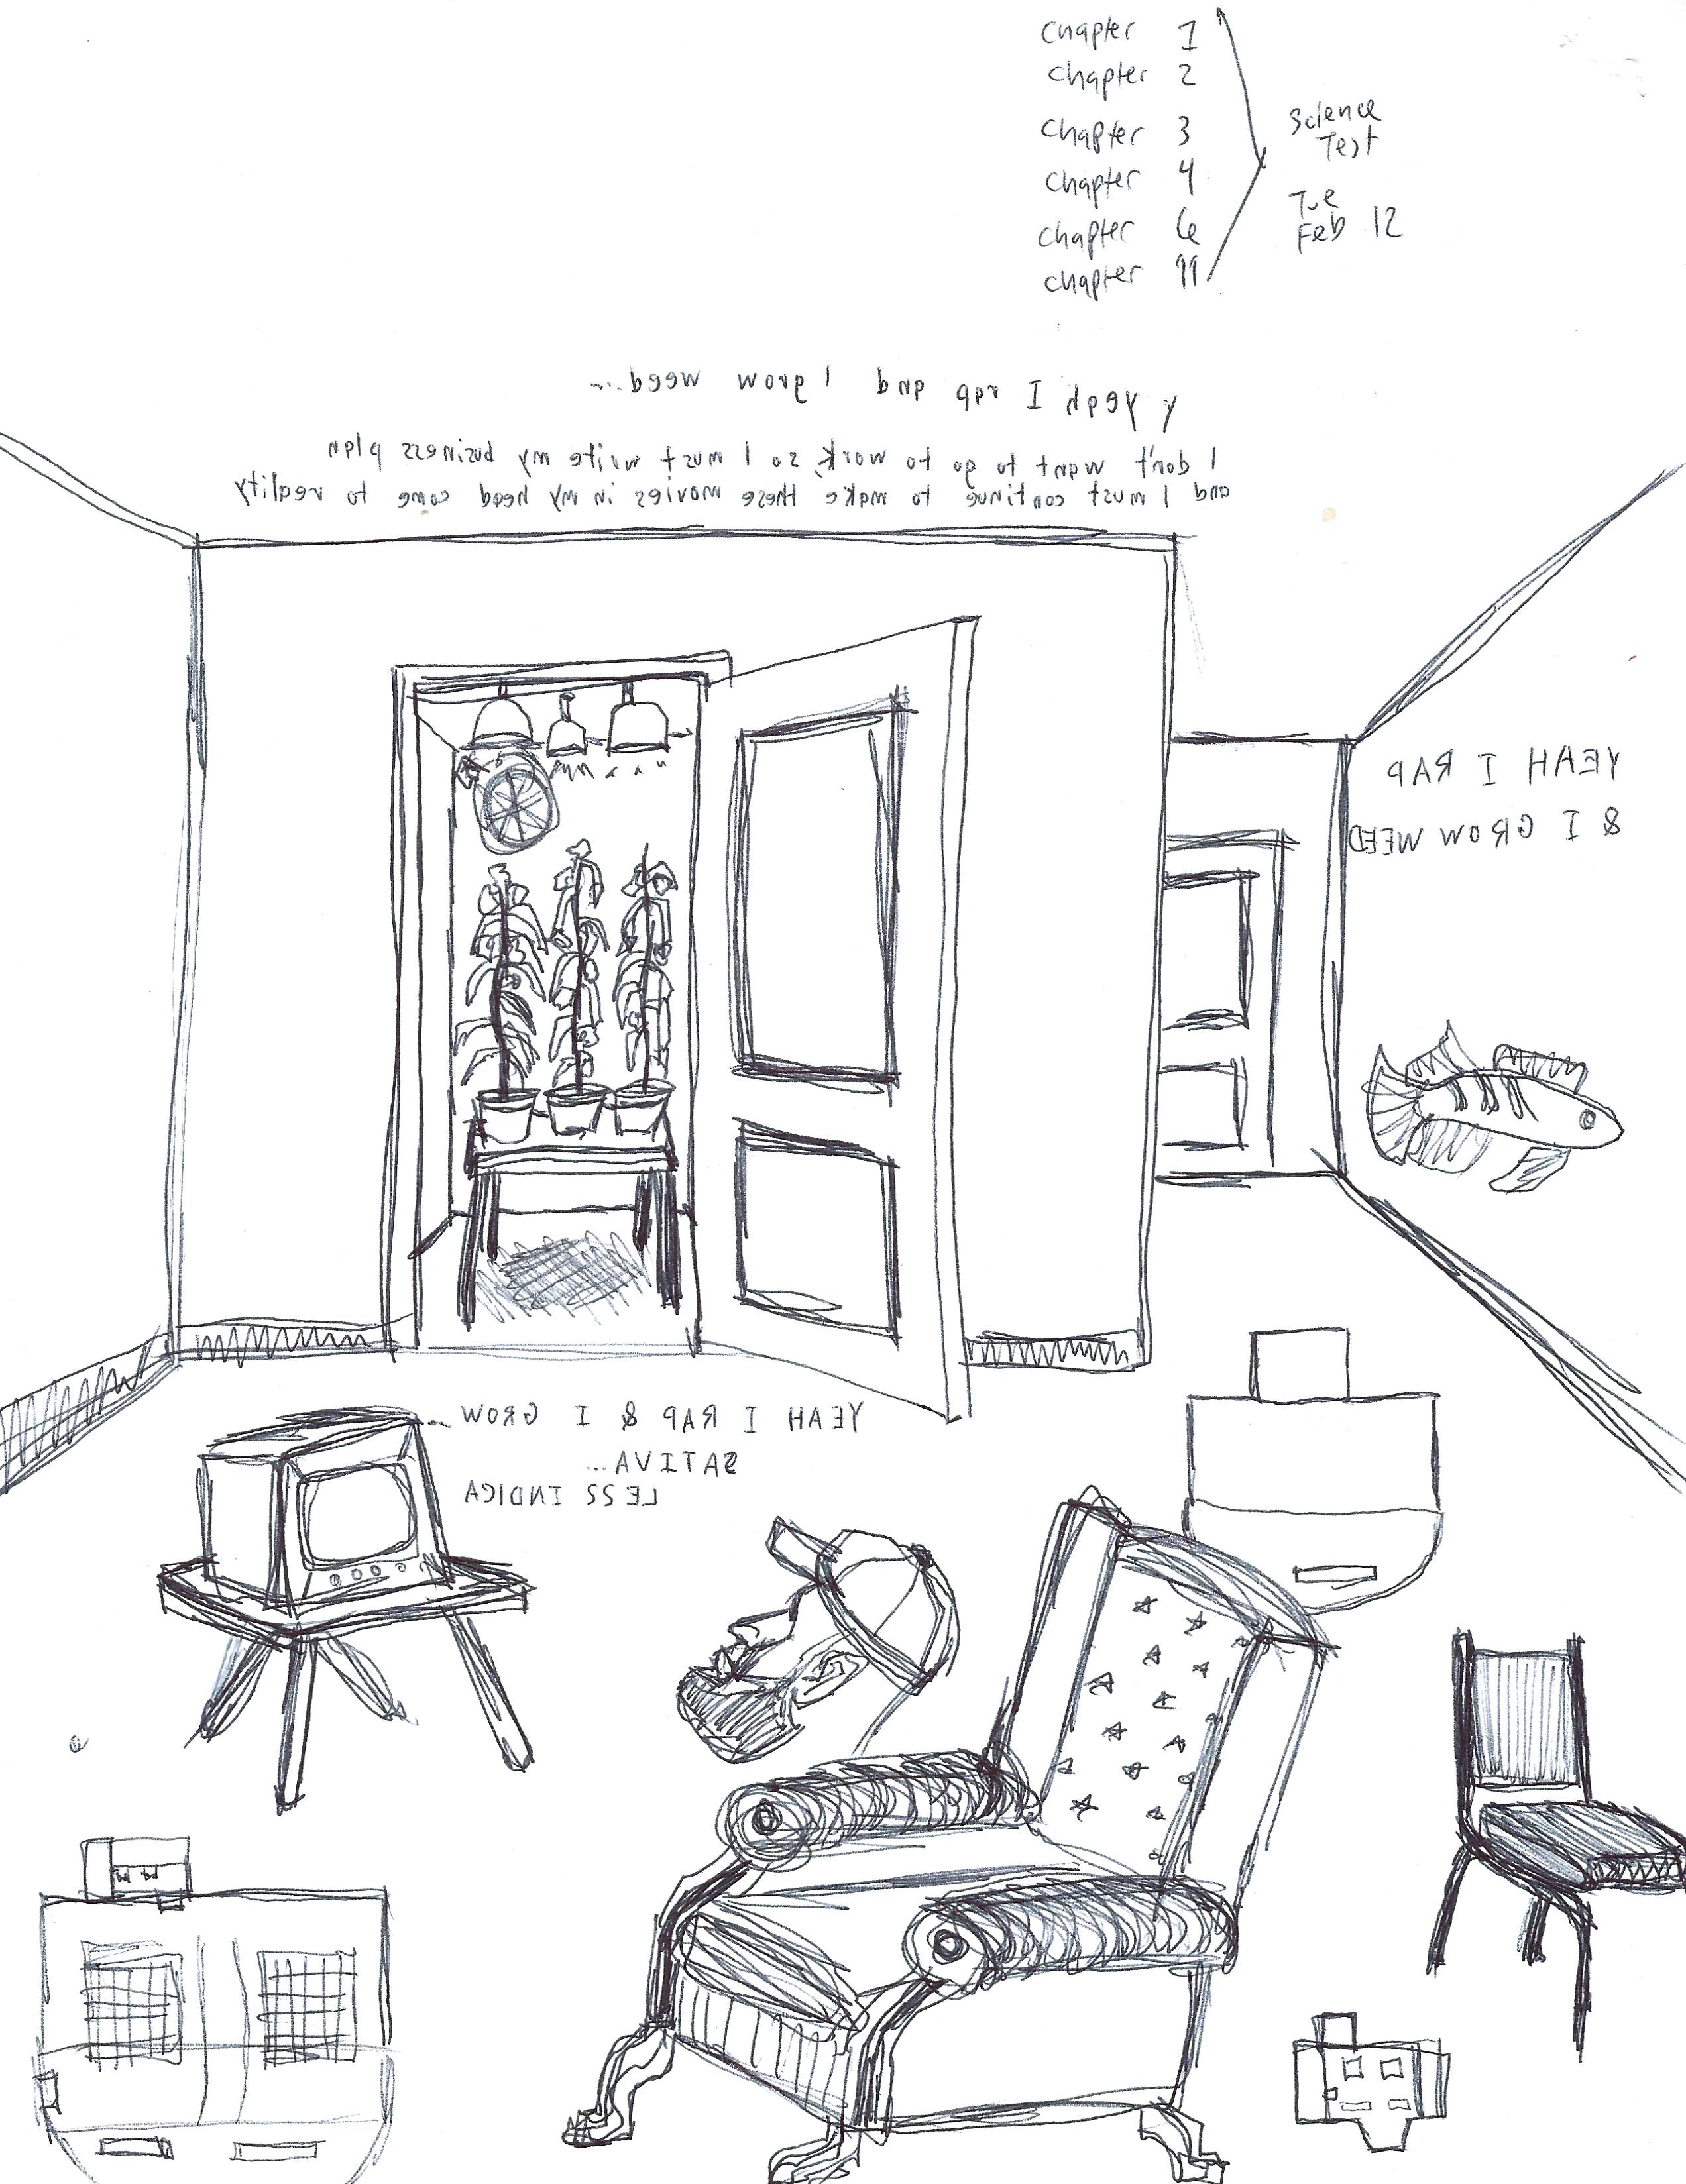 Chapter 1
Chapter 2
Chapter 3
Chapter 4
Chapter 6
Chapter 11
Science
Test
Tue
Feb 12
y yeah I rap and I grow weed...
I don't want to go to work, so I must write my business plan
and I must continue to make these movies in my head come to reality
YEAH I RAP
& I GROW WEED
YEAH I RAP & I GROW...
SATIVA...
LESS INDICA